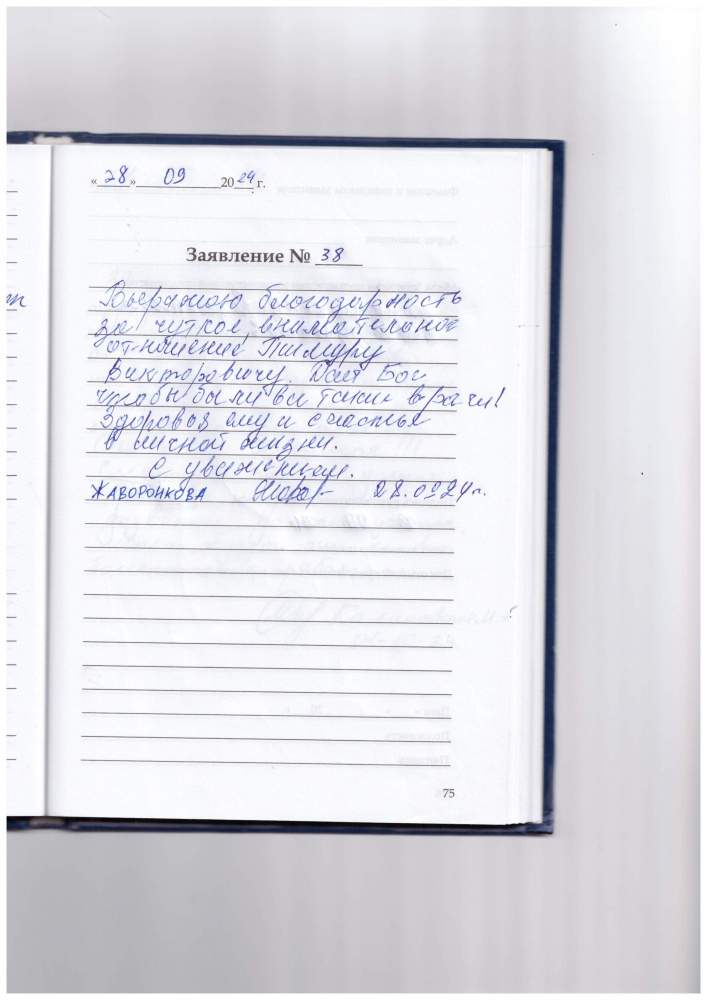 «28» 09 2024 г.
Заявление № 38
Выражаю благодарность
за чуткое, внимательное
отношение Тимуру
Викторовичу. Дай Бог
чтобы были все такие врачи!
Здоровья ему и счастья
в личной жизни.
С уважением.
ЖАВОРОНКОВА 28.09.24г.
75